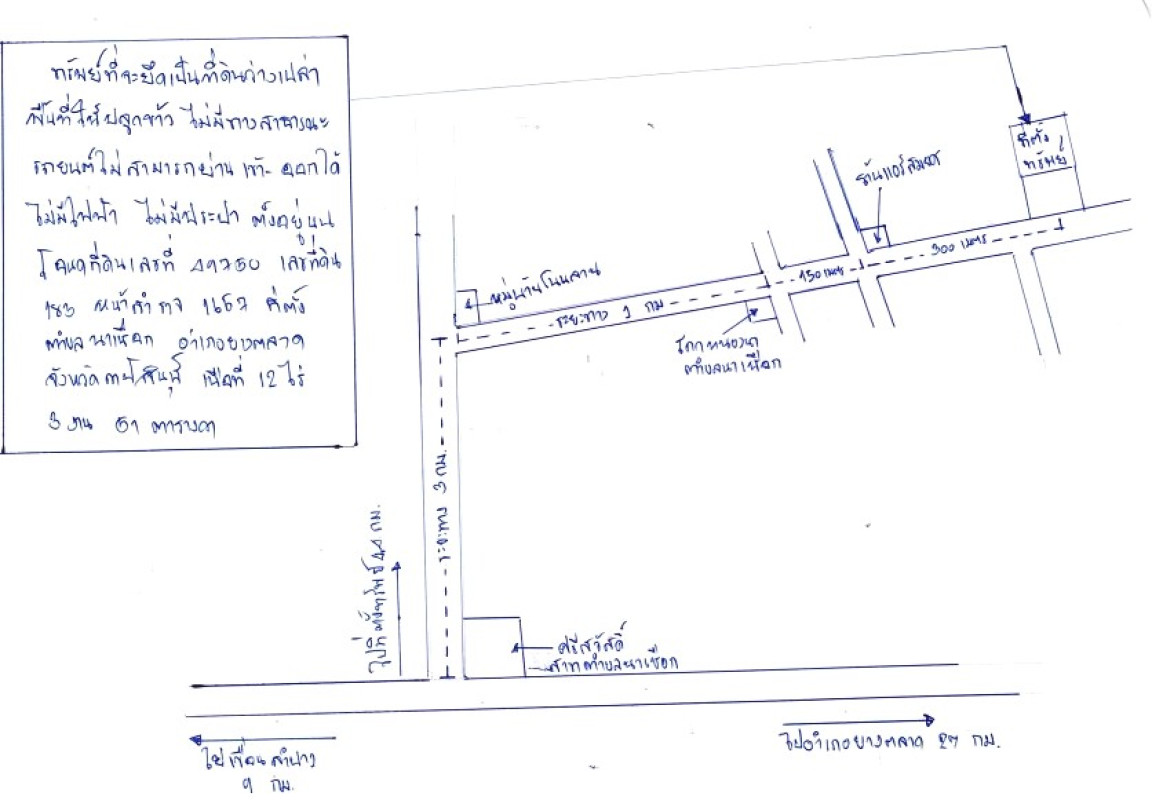 ทรัพย์ที่จะยึดเป็นที่ดินว่างเปล่า
พื้นที่ใช้ปลูกข้าว ไม่มีทางสาธารณะ
รถยนต์ไม่สามารถผ่าน เข้า-ออกได้
ไม่มีไฟฟ้า ไม่มีประปา ตั้งอยู่บน
โฉนดที่ดินเลขที่ 49750 เลขที่ดิน
183 หน้าสำรวจ ที่ตั้ง
ตำบลนาเชือก อำเภอยางตลาด
จังหวัดกาฬสินธุ์ เนื้อที่ 12 ไร่
3 งาน 51 ตารางวา
ที่ตั้ง
ทรัพย์
ร้านแอร์
300 เมตร
150 เมตร
หมู่บ้านโนนลาน
ระยะทาง 1 กม
โคกหนองนา
ตำบลนาเชือก
ระยะทาง 3 กม.
ไปที่ตั้งทรัพย์ 4.4 กม.
ศรีสวัสดิ์
สาขาตำบลนาเชือก
ไปเขื่อนลำปาว
9 กม.
ไปอำเภอยางตลาด 27 กม.